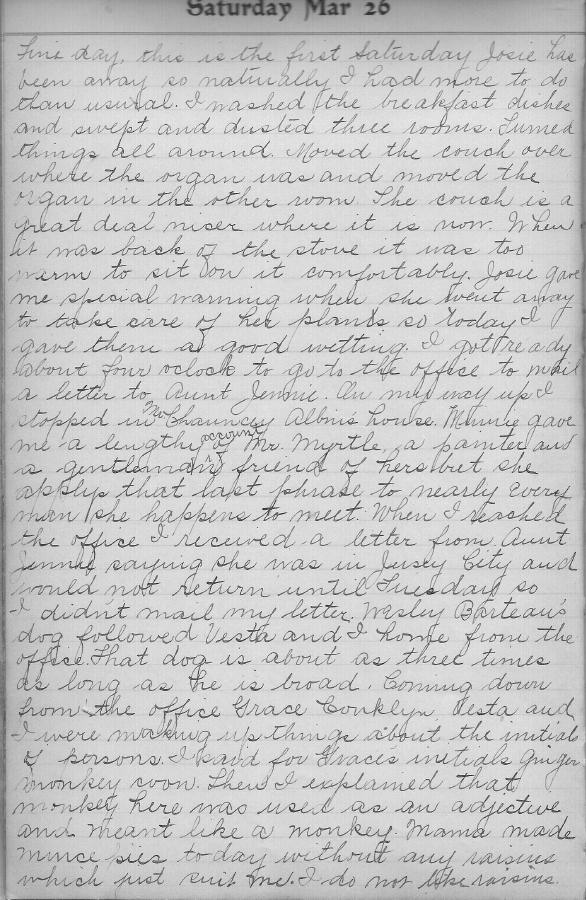 Saturday Mar 26
Fine day, this is the first Saturday Josie has
been away so naturally I had more to do
than usural. I washed the breakfast dishes
and swept and dusted three rooms. Turned
things all around. Moved the couch over
where the organ was and moved the
organ in the other room. The couch is a
great deal niser where it is now. When
it was back of the stove it was too
warm to sit on it comfortably. Josie gave
me spesial warning when she went away
to take care of her plants so today I
gave them a good wetting. I got ready
about four oclock to go to the office to mail
a letter to Aunt Jennie. On my way up I
stopped in Mr Chauncey Albin's house. Minnie gave
me a lengthy account of Mr. Myrtle, a painter and
a gentleman friend of hers but she
applys that last phrase to nearly every
man she happens to meet. When I reached
the office I received a letter from Aunt
Jennie saying she was in Jersey City and
would not return until Tuesday so
I didn't mail my letter. Wesley Barteau's
dog followed Vesta and I home from the
office. That dog is about as three times
as long as he is broad. Coming down
from the office Grace Conklyn Vesta and
I were making up things about the initials
of persons. I said for Grace's initials ginger
monkey coon. Then I explained that
monkey here was used as an adjective
and meant like a monkey. Mama made
mince pies today without any raisins
which just suit me. I do not like raisins.